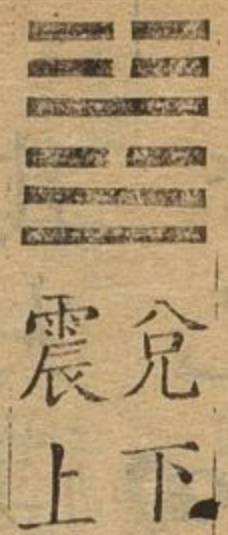 兌下
震上